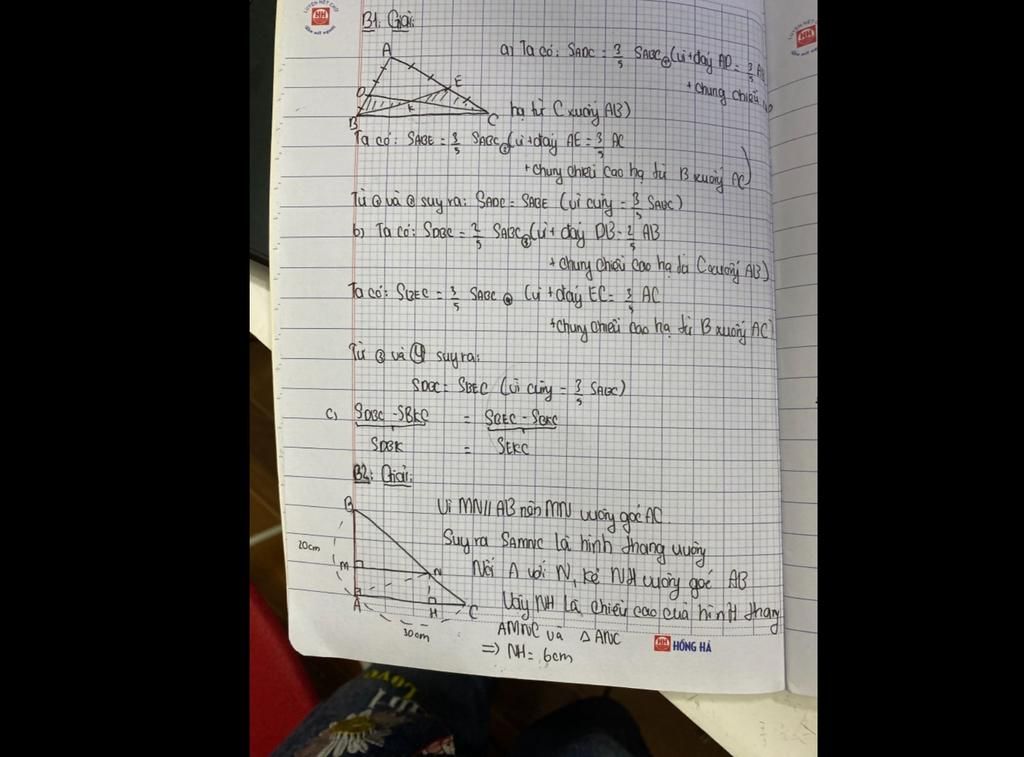 LUYỆN NÉT CHỮ
HH
B1: Giải:
a) Ta có: SADC = 3/5 SABC ① (vì + đáy AD = 3/5 AB
+ chung chiều cao
hạ từ C xuống AB)
A
D
E
K
B
C
Ta có: SABE = 3/5 SABC ② (vì + đáy AE = 3/5 AC
+ chung chiều cao hạ từ B xuống AC)
Từ ① và ② suy ra: SADC = SABE (vì cùng = 3/5 SABC)
b) Ta có: SDBC = 2/5 SABC ③ (vì + đáy DB = 2/5 AB
+ chung chiều cao hạ từ C xuống AB)
Ta có: SBEC = 3/5 SABC ④ (vì + đáy EC = 3/5 AC
+ chung chiều cao hạ từ B xuống AC)
Từ ③ và ④ suy ra:
SDBC = SBEC (vì cùng = 3/5 SABC)
c) SDBC - SBKC = SBEC - SBKC
SDBK = SEKC
B2: Giải:
Vì MN // AB nên MN vuông góc AC.
Suy ra SAMNC là hình thang vuông
Nối A với N, kẻ NH vuông góc AB
Vậy NH là chiều cao của hình thang
AMNC và △ ANC
=> NH = 6cm
B
20cm
M
N
A
H
C
30cm
HH HỒNG HÀ